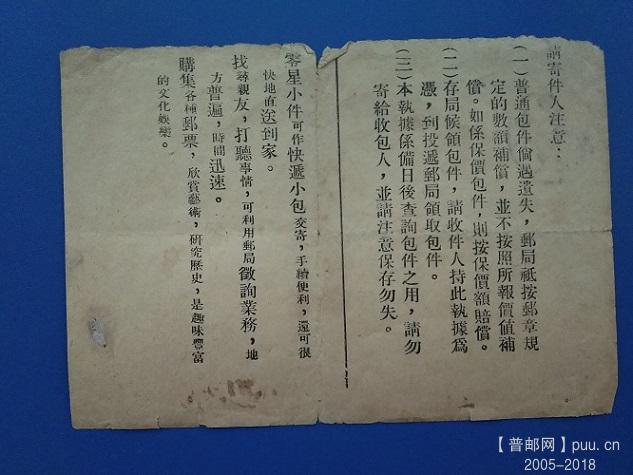 請寄件人注意：
（一）普通包件倘遇遺失，郵局祇按郵章規
定的數額補償，並不按照所報價值補
償。如係保價包件，則按保價額賠償。
（二）存局候領包件，請收件人持此執據爲
憑，到投遞郵局領取包件。
（三）本執據係備日後查詢包件之用，請勿
寄給收包人，並請注意保存勿失。
零星小件可作快遞小包交寄，手續便利，還可很
快地直送到家。
找尋親友，打聽事情，可利用郵局徵詢業務，地
方普遍，時間迅速。
購集各種郵票，欣賞藝術，研究歷史，是趣味豐富
的文化娛樂。
【普邮网】puu.cn
2005-2018